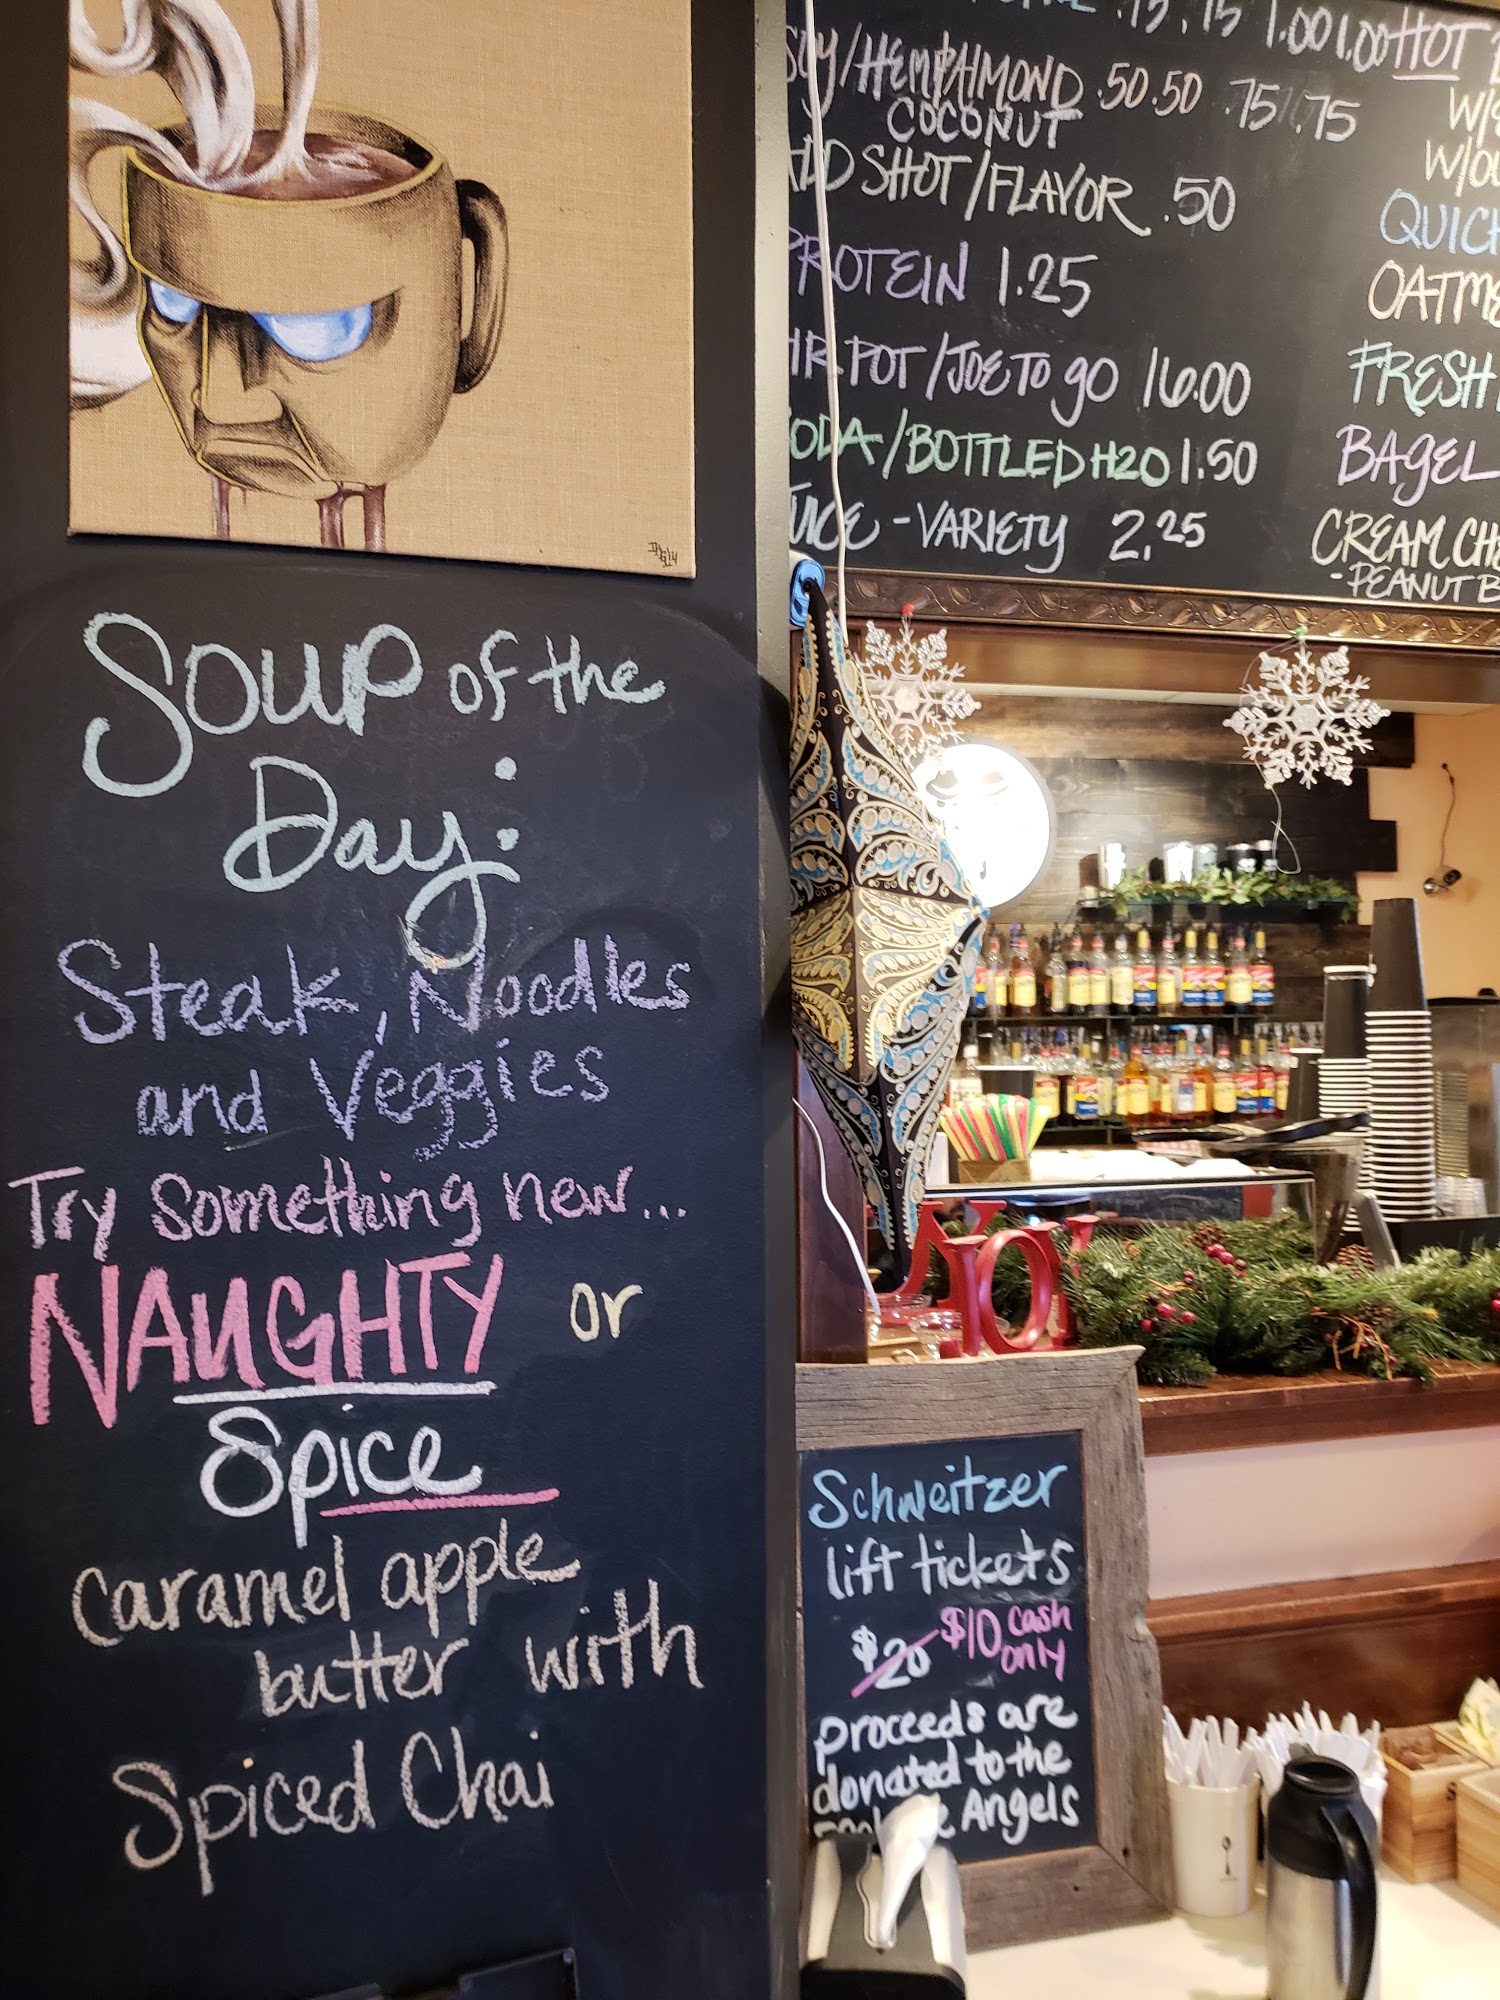 .75 .75 1.00 1.00
HEMP/ALMOND .50 .50 .75 .75
COCONUT
SHOT/FLAVOR .50
PROTEIN 1.25
POT/JOE TO GO 16.00
/BOTTLED H2O 1.50
- VARIETY 2.25
HOT
W/
QUICK
FRESH
BAGEL
CREAM
-PEANUT B
Soup of the
Day:
Steak, Noodles
and Veggies
Try something new...
NAUGHTY or
Spice
caramel apple
butter with
Spiced Chai
NOE
Schweitzer
lift tickets
$20 $10 cash
only
proceeds are
donated to the
Angels